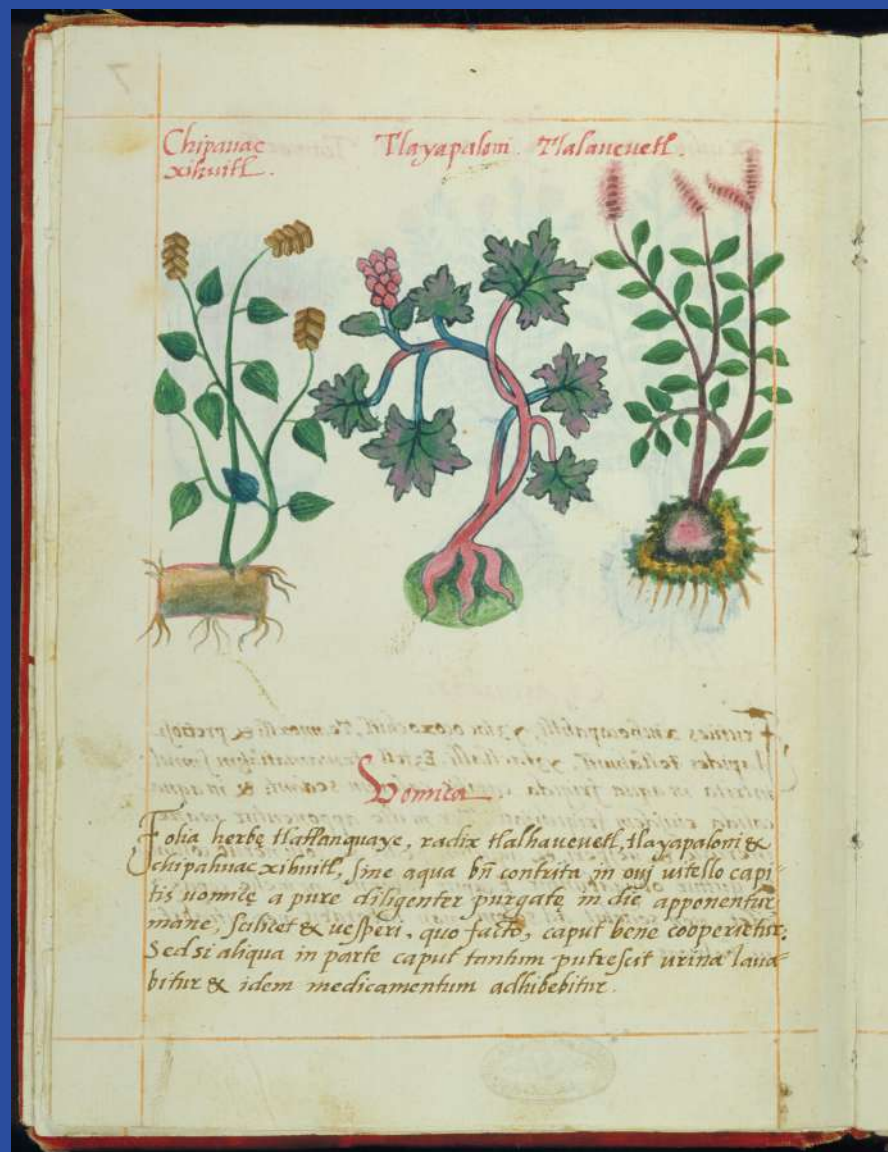 Chipauac Tlayapaloni. Tlalaueuetl.
xihuitl.
Vomica
Folia herbę tlatlanquaye, radix tlalhaueuetl, tlayapaloni &
chipahuac xihuitl, sine aqua bñ contrita in oui uitello capi-
tis uomicę a pure diligenter purgatę in die apponentur
mane, scilicet & uesperi, quo facto, caput bene cooperietur:
Sed si aliqua in parte caput tantum putrescit urina laua-
bitur & idem medicamentum adhibebitur.